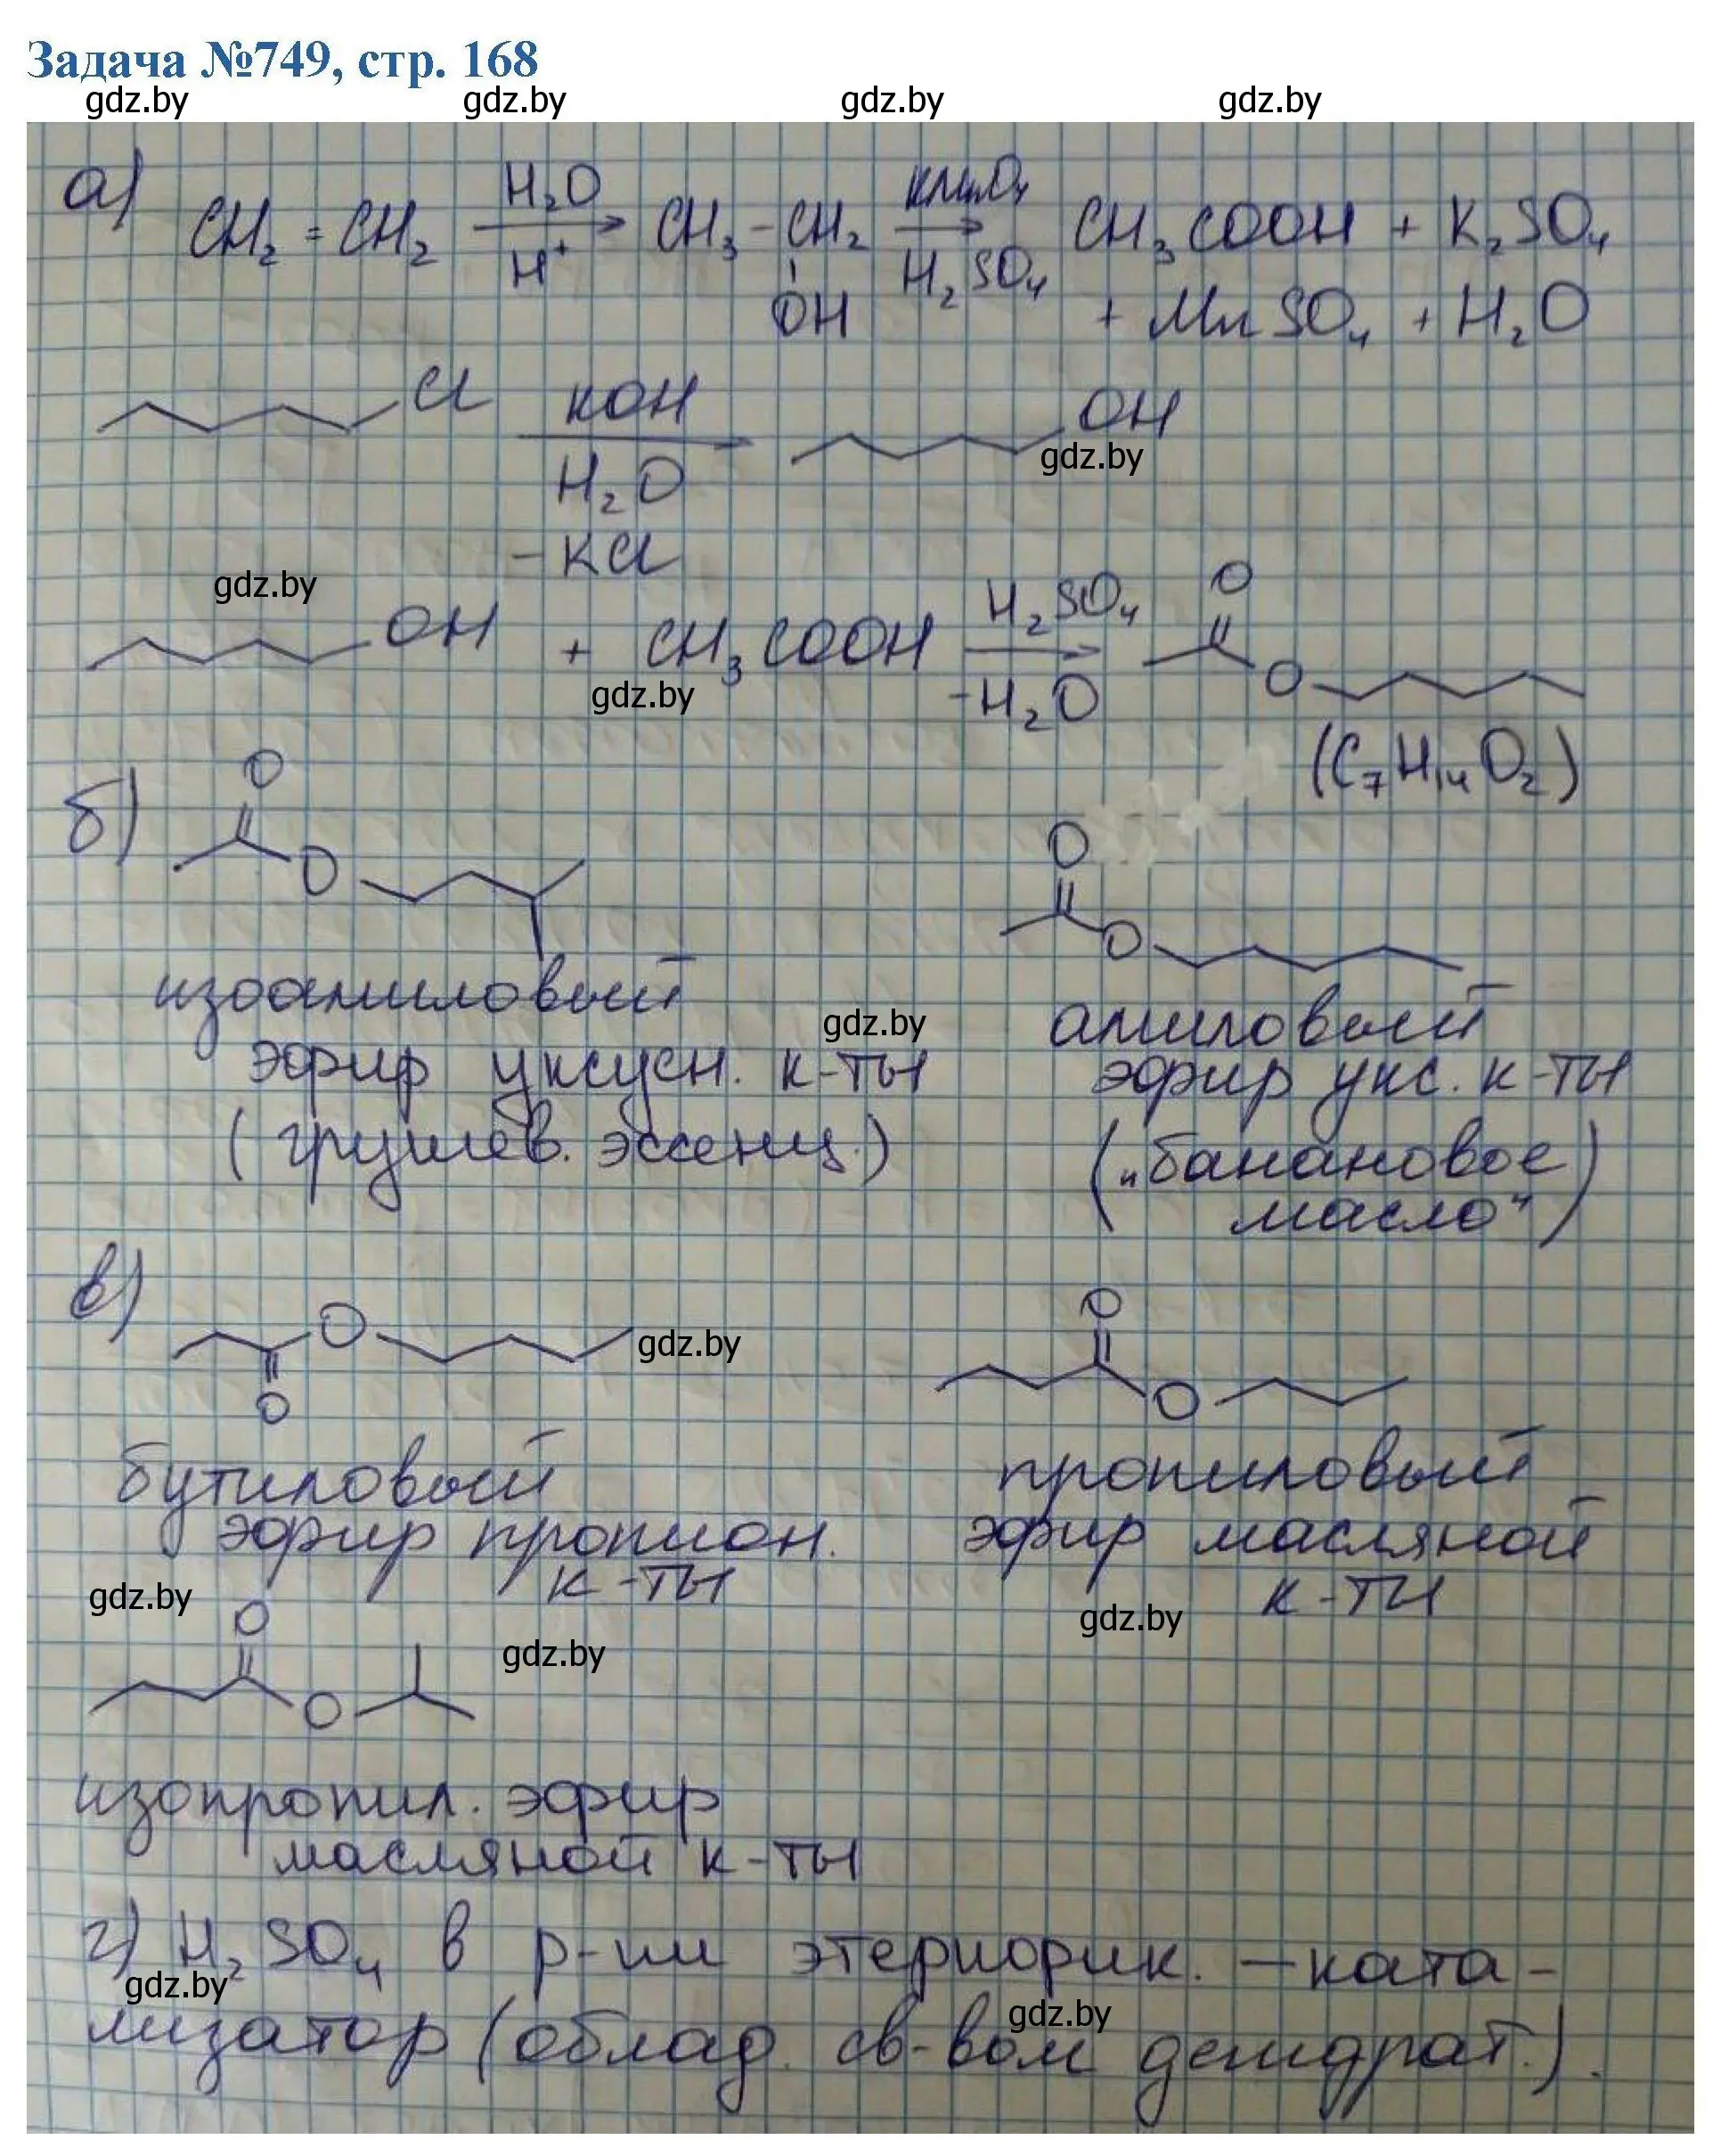 Задача №749, стр. 168
gdz.by gdz.by gdz.by gdz.by
а) CH₂ = CH₂ H₂O H⁺ CH₃ - CH₂ OH KMnO₄ H₂SO₄ CH₃COOH + K₂SO₄
+ MnSO₄ + H₂O
Cl KOH H₂O - KCl OH
gdz.by
gdz.by
OH + CH₃COOH H₂SO₄ - H₂O O O
gdz.by
(C₇H₁₄O₂)
б) O O O O
изоамиловый
эфир уксусн. к-ты
(грушев. эссенц.)
gdz.by
амиловый
эфир укс. к-ты
(„банановое
масло")
в) O O O O
gdz.by
бутиловый
эфир пропион.
к-ты
пропиловый
эфир масляной
к-ты
gdz.by
gdz.by
O O
gdz.by
изопропил. эфир
масляной к-ты
г) H₂SO₄ в р-ии этерифик. — ката-
gdz.by
gdz.by
лизатор (облад. св-вом дегидрат.).